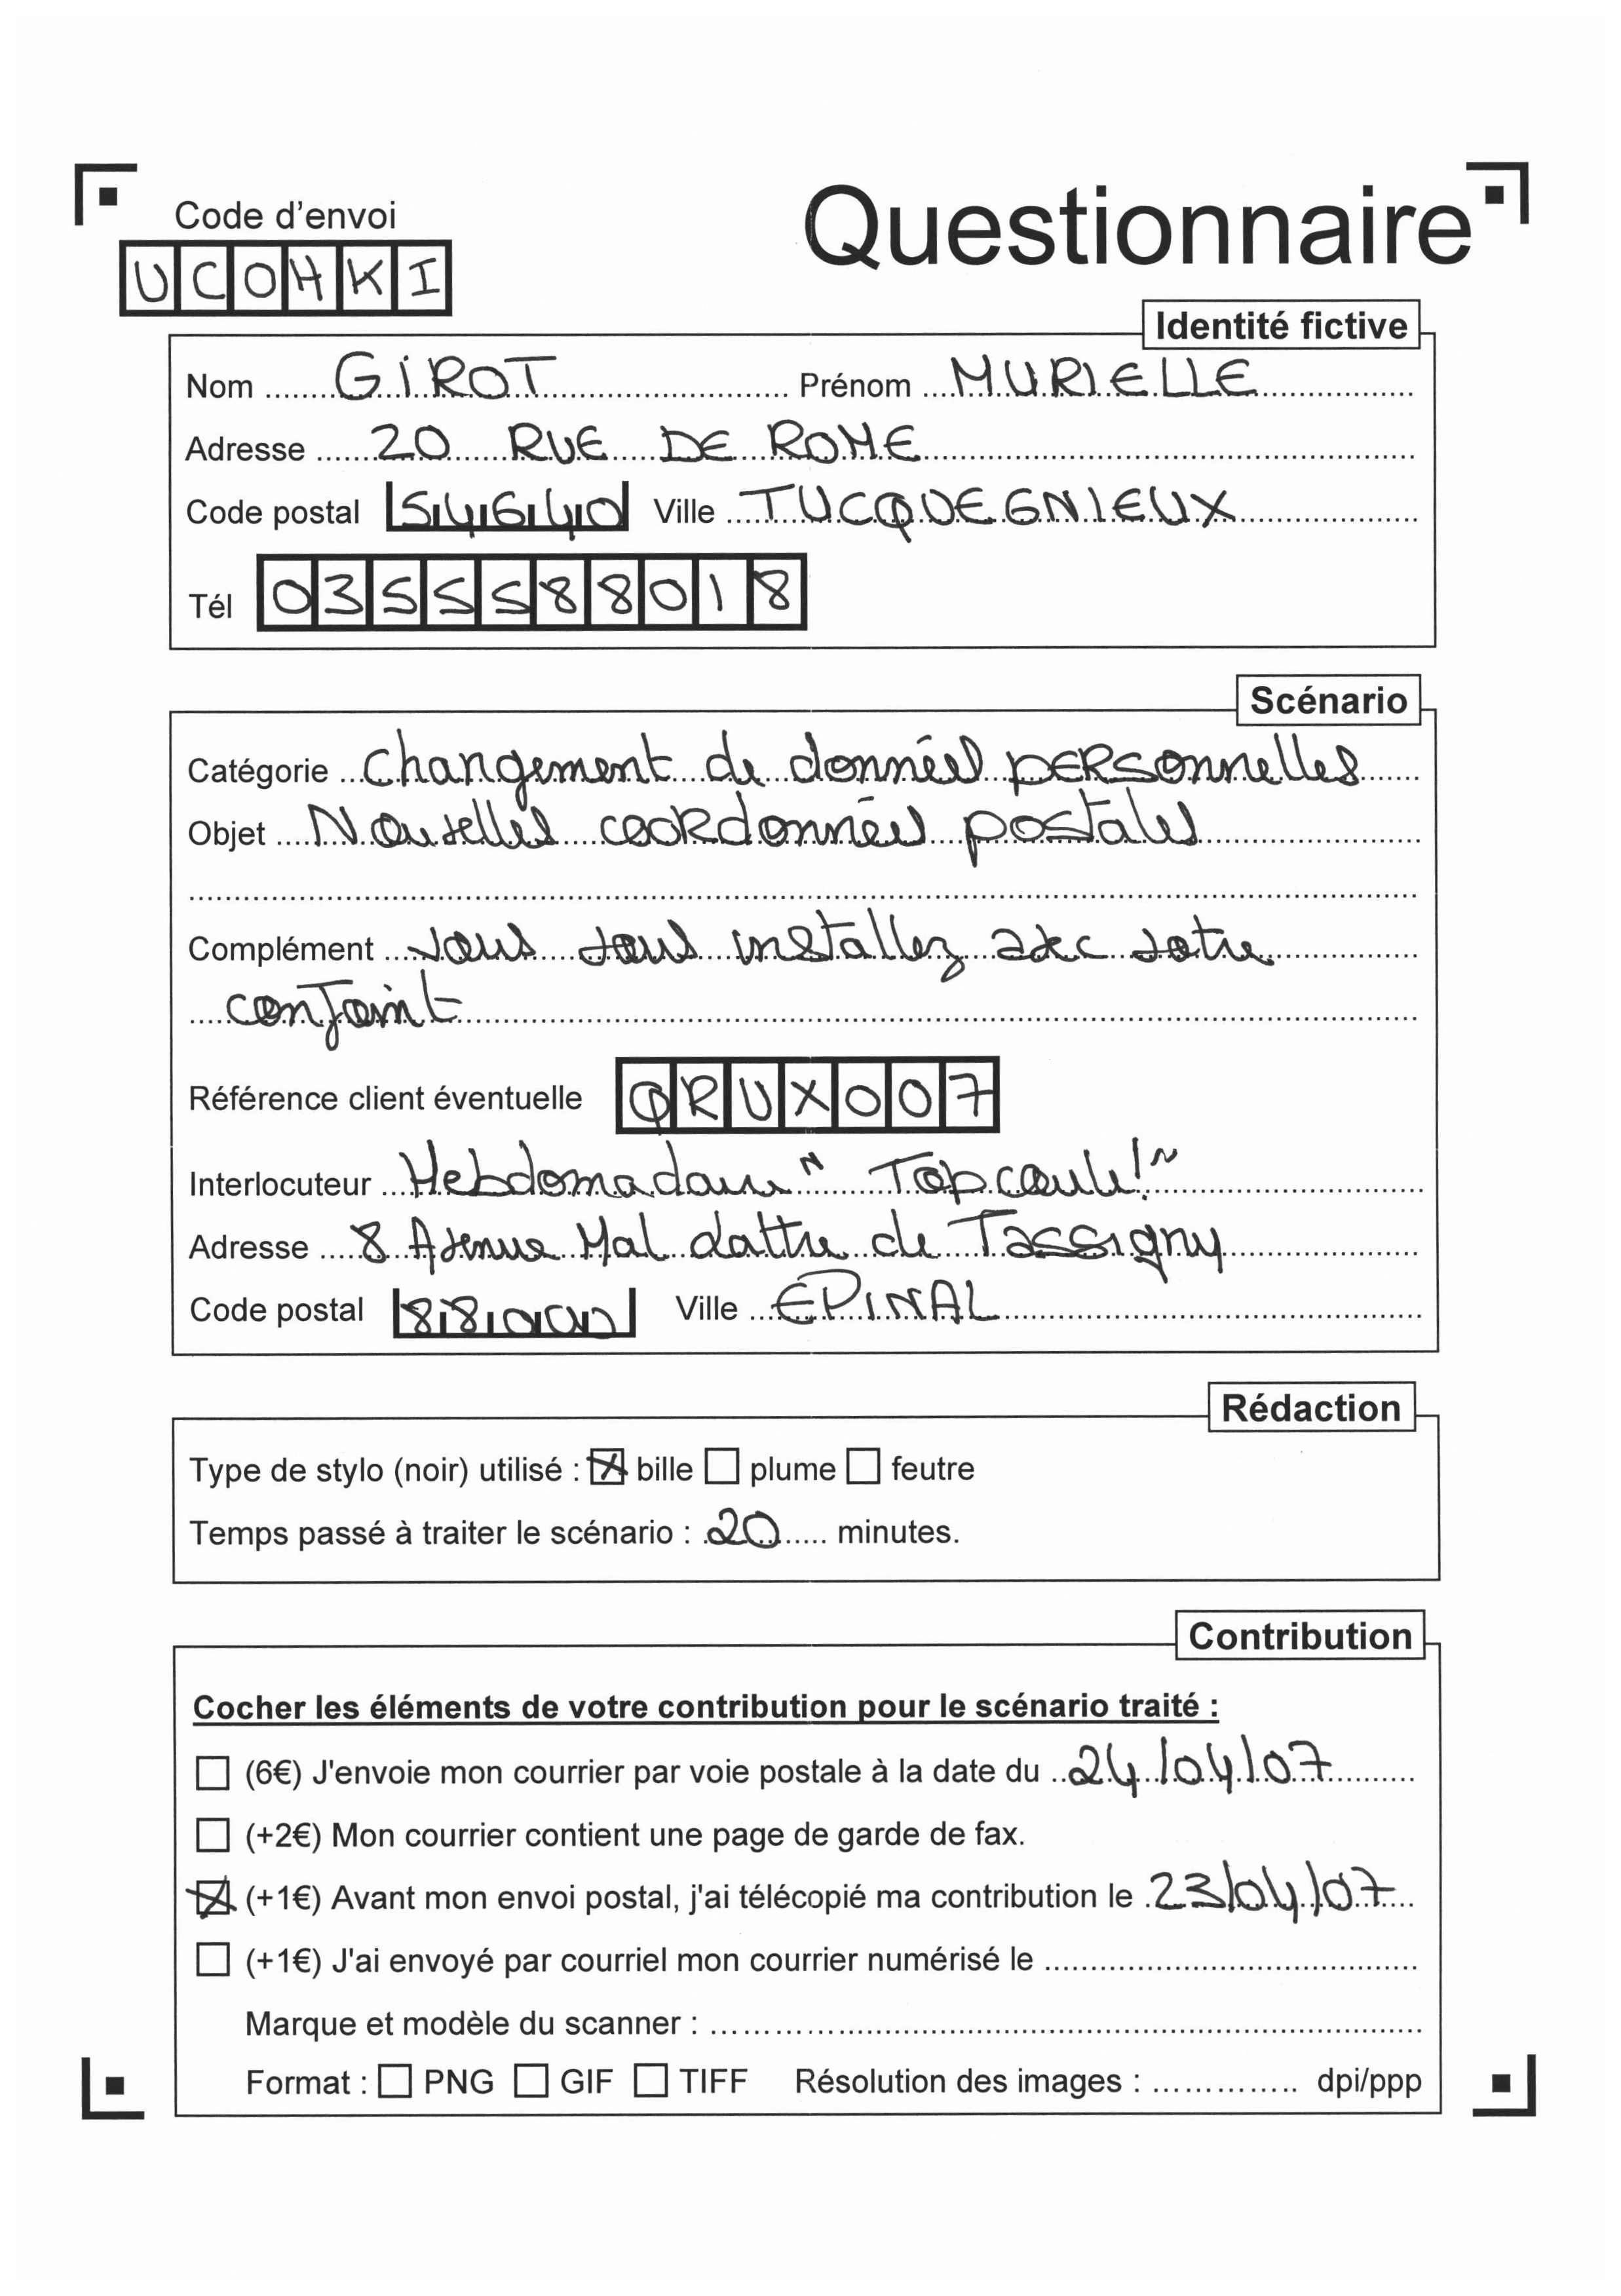 Code d'envoi
UCOHKI
Questionnaire
Identité fictive
Nom GIROT Prénom MURIELLE
Adresse 20 RUE DE ROME
Code postal 54640 Ville TUCQUEGNIEUX
Tél 0355588018
Scénario
Catégorie changement de données personnelles
Objet Nouvelles coordonnées postales
Complément vous vous installez avec votre
conjoint
Référence client éventuelle QRUX007
Interlocuteur Hebdomadaire " Top coule!"
Adresse 8 Avenue Mal dattre de Tassigny
Code postal 88000 Ville EPINAL
Rédaction
Type de stylo (noir) utilisé : bille plume feutre
Temps passé à traiter le scénario : 20 minutes.
Contribution
Cocher les éléments de votre contribution pour le scénario traité :
(6€) J'envoie mon courrier par voie postale à la date du 24/04/07
(+2€) Mon courrier contient une page de garde de fax.
(+1€) Avant mon envoi postal, j'ai télécopié ma contribution le 23/04/07
(+1€) J'ai envoyé par courriel mon courrier numérisé le
Marque et modèle du scanner :
Format : PNG GIF TIFF Résolution des images : dpi/ppp